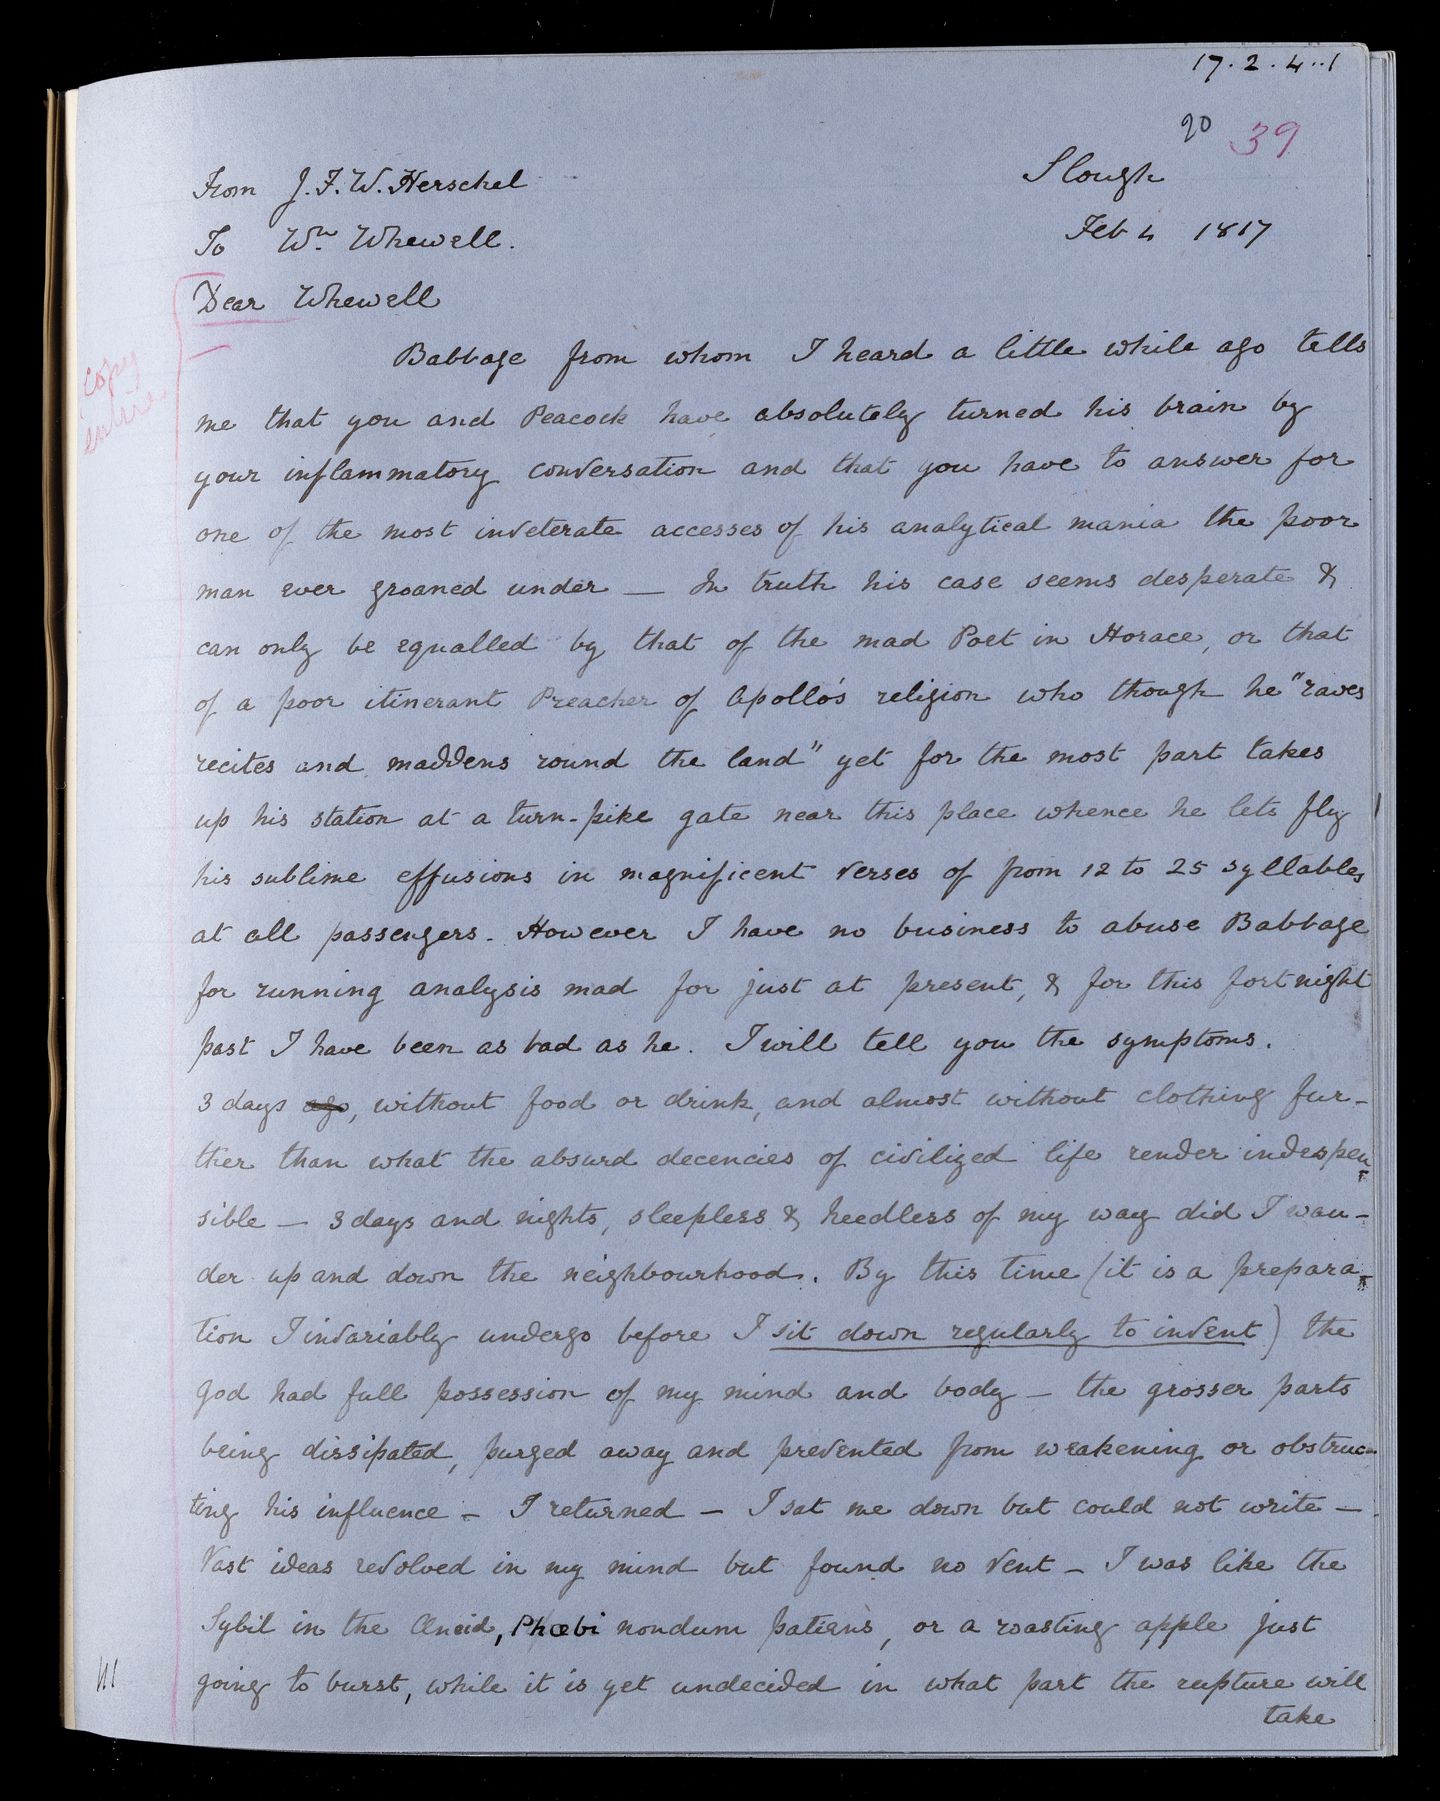 17.2.4..1
20 39
From J.F.W. Herschel
Slough
To Wm. Whewell.
Feb 4 1817
Dear Whewell
copy
entire
Babbage from whom I heard a little while ago tells
me that you and Peacock have absolutely turned his brain by
your inflammatory conversation and that you have to answer for
one of the most inveterate accesses of his analytical mania the poor
man ever groaned under — In truth his case seems desperate &
can only be equalled by that of the mad Poet in Horace, or that
of a poor itinerant Preacher of Apollo's religion who though he "raves
recites and maddens round the land" yet for the most part takes
up his station at a turn-pike gate near this place whence he lets fly
his sublime effusions in magnificent verses of from 12 to 25 syllables
at all passengers. However I have no business to abuse Babbage
for running analysis mad for just at present, & for this fortnight
past I have been as bad as he. I will tell you the symptoms.
3 days ago, without food or drink, and almost without clothing fur-
ther than what the absurd decencies of civilized life render indespen-
sible — 3 days and nights, sleepless & heedless of my way did I wan-
der up and down the neighbourhood. By this time (it is a prepara-
tion I invariably undergo before I sit down regularly to invent) the
God had full possession of my mind and body — the grosser parts
being dissipated, purged away and prevented from weakening or obstruc-
ting his influence — I returned — I sat me down but could not write —
Vast ideas revolved in my mind but found no vent — I was like the
Sybil in the Æneid, Phœbi nondum patiens, or a roasting apple just
going to burst, while it is yet undecided in what part the rupture will
take